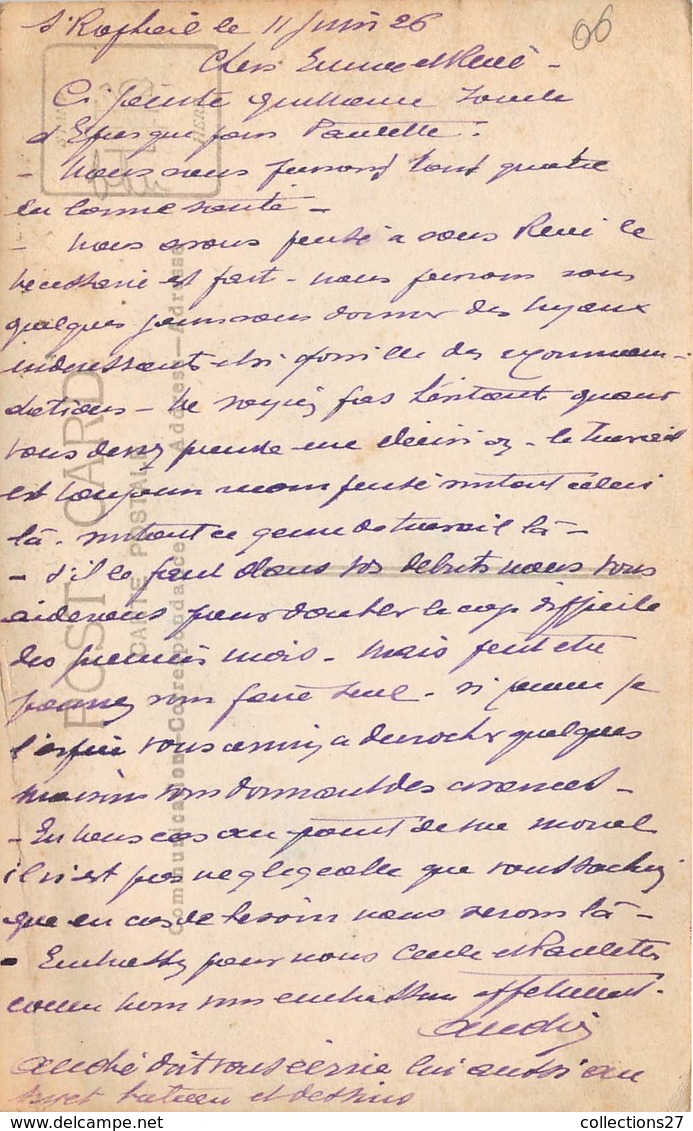 St Raphaël le 11 Juin 26
06
Chers Emma et René -
Ci jointe
pour Paulette.
- Nous nous tous quatre
en bonne santé -
- Nous avons pensé à vous René le
nécessaire est fait - nous pensons sous
quelques jours vous donner des tuyaux
intéressants et si possible des recomman-
dations - Ne soyez pas hésitants quand
vous devez prendre une décision - le travail
est toujours surtout celui
là - surtout ce genre de travail là -
- S'il le faut dans vos débuts nous vous
aiderons pour doubler le cap difficile
des premiers mois - Mais peut être
pourrez vous faire seul - si comme je
l'espère vous arrivez à décrocher quelques
maisons vous donnant des avances -
- En tous cas au point de vue moral
il n'est pas négligeable que vous sachiez
que en cas de besoin nous serons là -
- Embrassez pour nous et Paulette
comme nous vous embrassons affectueusement.
André doit vous écrire lui aussi au
sujet bateau et dessins
POST CARD
CARTE POSTALE
Communication-Correspondance
Address-Adresse
STAMP
HERE
collections27